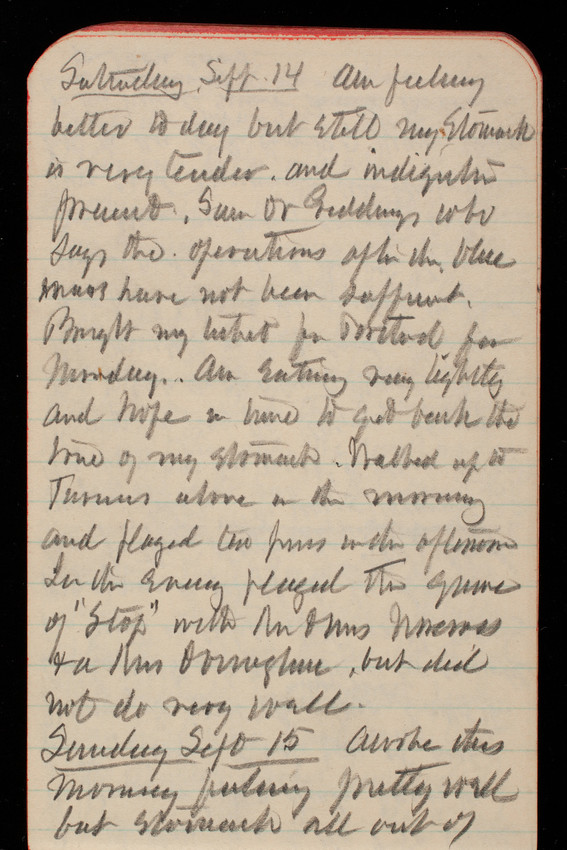 Saturday, Sept. 14 Am feeling
better to day but still my stomach
is very tender. and indigestion
present. Saw Dr Giddings who
says the operations after the blue
mass have not been sufficient.
Bought my ticket for for
Monday.. Am eating very lightly
and hope in time to get back the
tone of my stomach. Walked up to
Turners alone in the morning
and played ten pins in the afternoon
In the evening played the game
of "Stop" with Mr & Mrs
& a Mrs Donaghue, but did
not do very well.
Sunday Sept 15 Awoke this
morning feeling pretty well
but stomach all out of